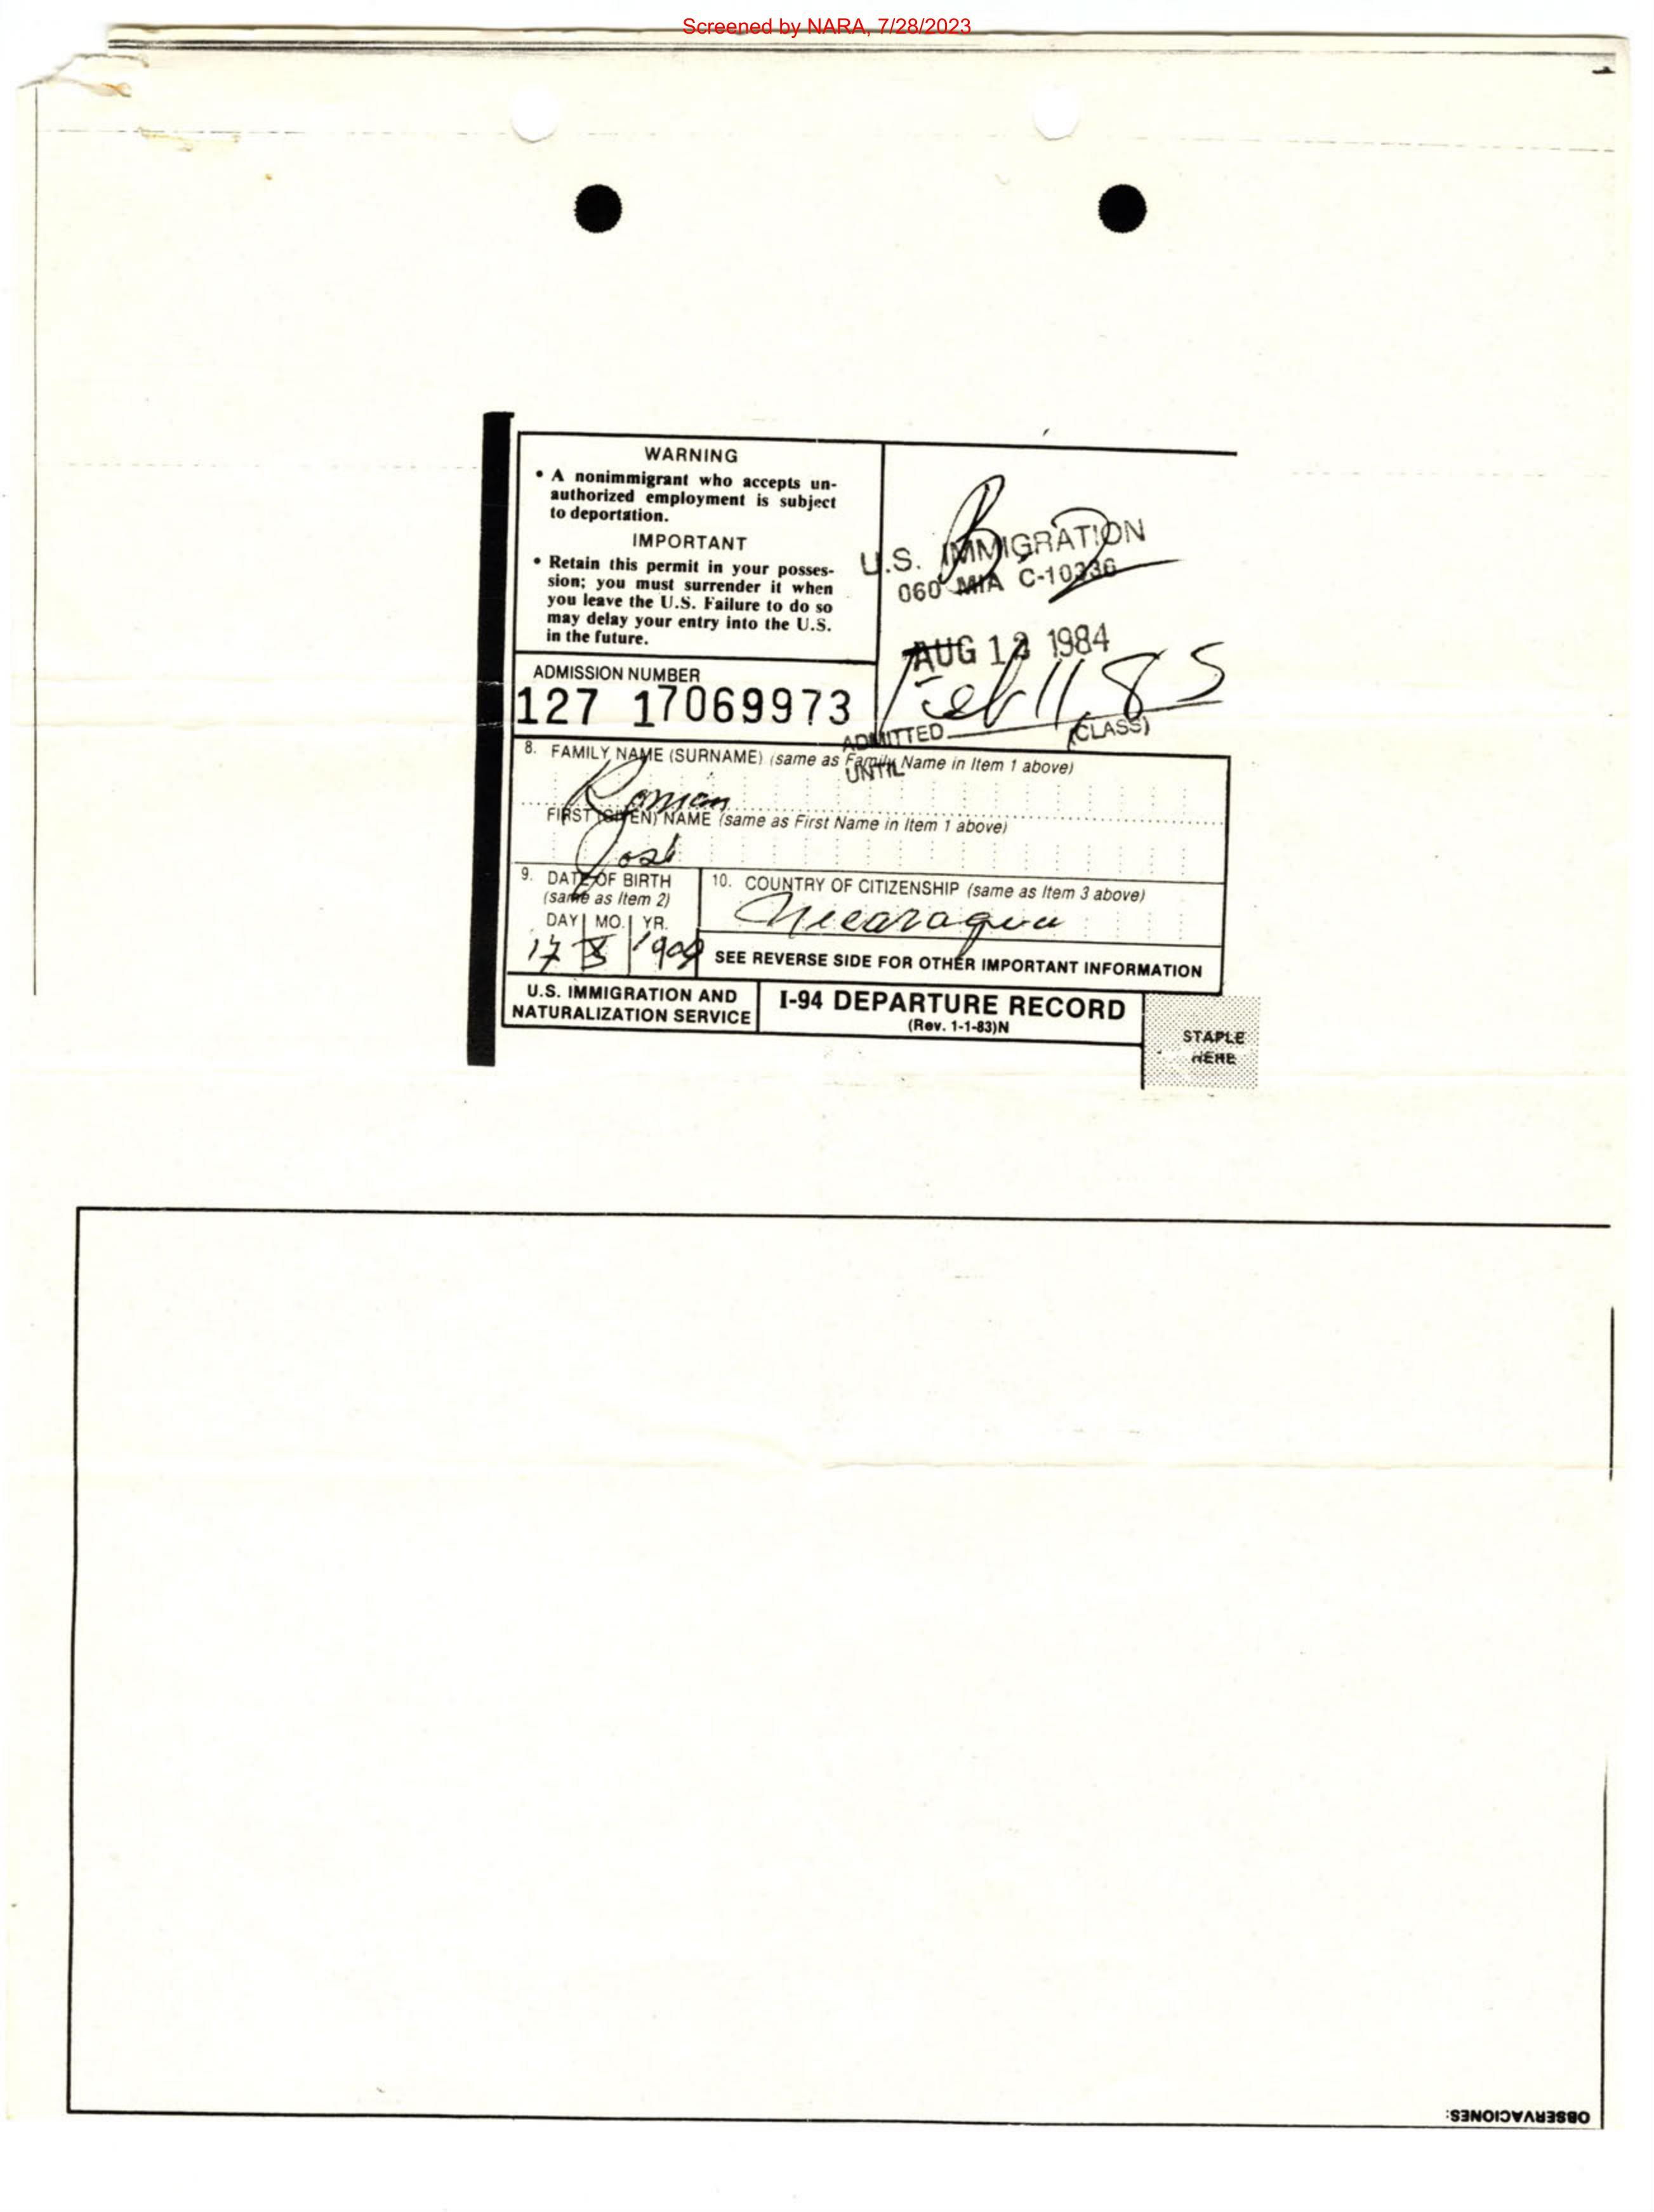 Screened by NARA, 7/28/2023
WARNING
• A nonimmigrant who accepts un-
authorized employment is subject
to deportation.
IMPORTANT
• Retain this permit in your posses-
sion; you must surrender it when
you leave the U.S. Failure to do so
may delay your entry into the U.S.
in the future.
U.S. IMMIGRATION
060 MIA C-10336
AUG 1 1984
Feb 11, 85
ADMITTED
(CLASS)
UNTIL
ADMISSION NUMBER
127 17069973
8. FAMILY NAME (SURNAME) (same as Family Name in Item 1 above)
Roman
FIRST (GIVEN) NAME (same as First Name in Item 1 above)
José
9. DATE OF BIRTH
(same as Item 2)
DAY MO. YR.
17 X
10. COUNTRY OF CITIZENSHIP (same as Item 3 above)
Nicaragua
SEE REVERSE SIDE FOR OTHER IMPORTANT INFORMATION
U.S. IMMIGRATION AND
NATURALIZATION SERVICE
I-94 DEPARTURE RECORD
(Rev. 1-1-83)N
STAPLE
HERE
OBSERVACIONES: